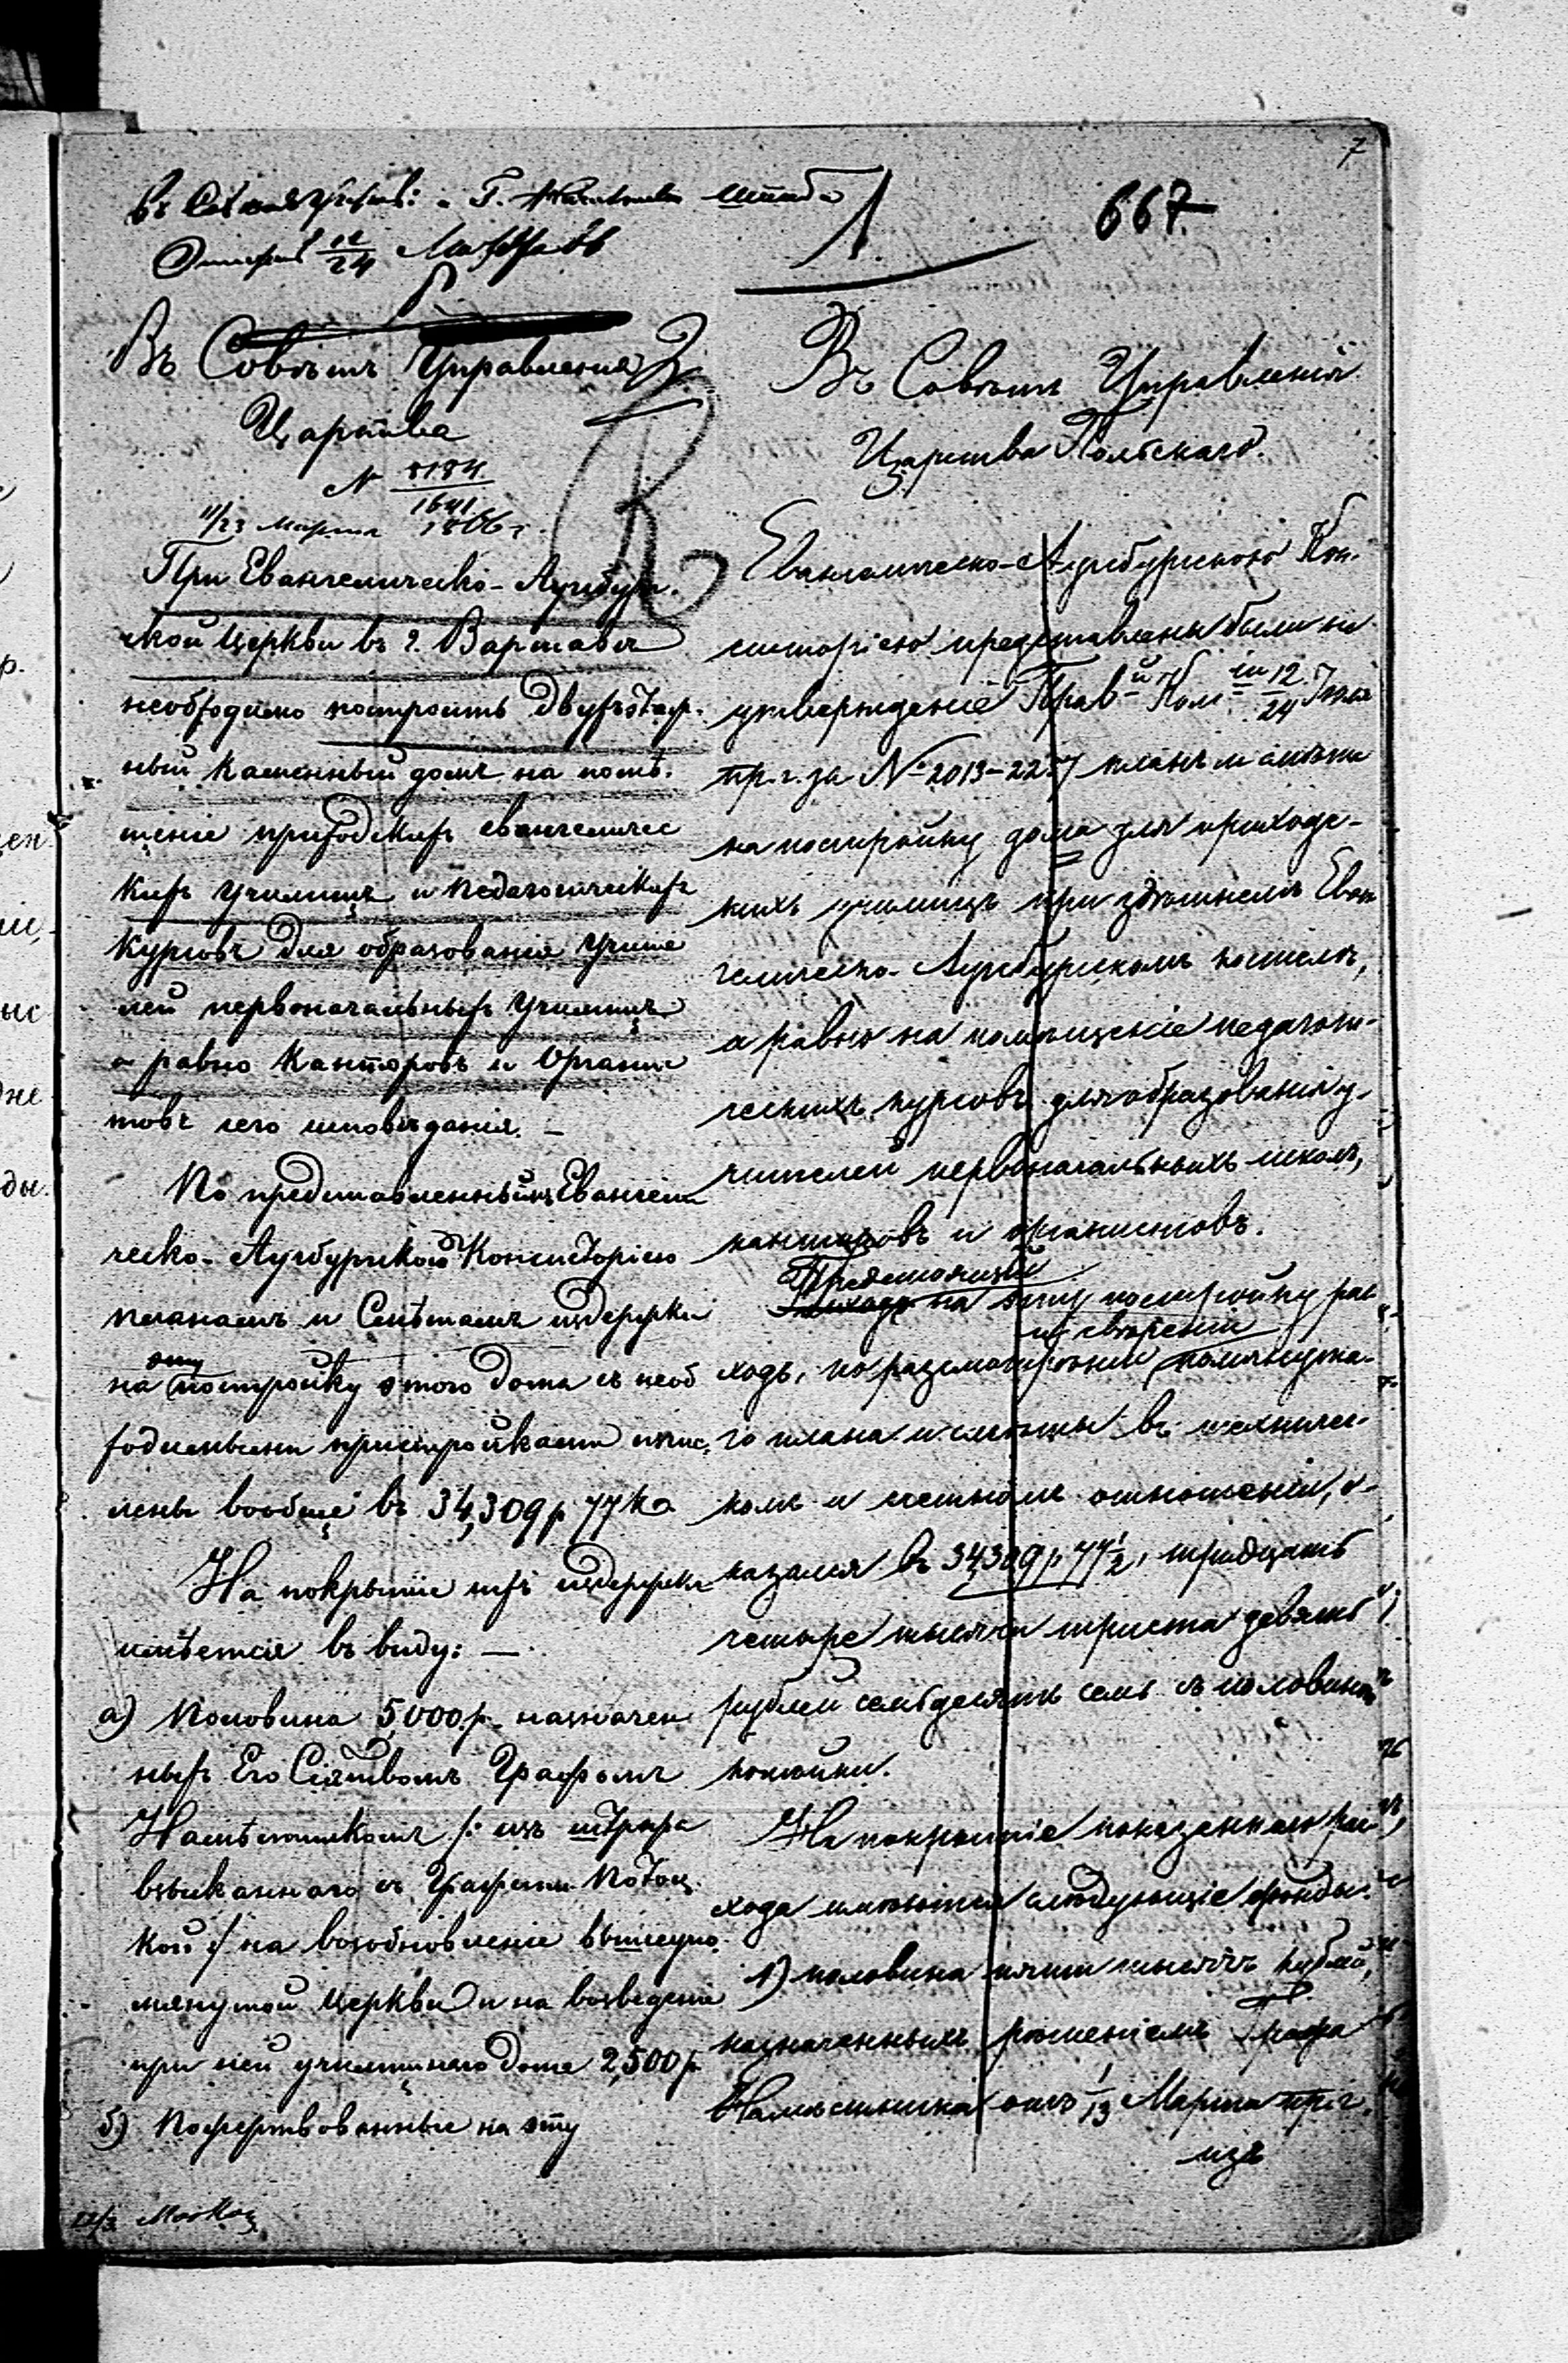 7
667.
1.
12/24
Въ Совѣтъ Управленія
Царства
N 8184/1641
11/23 Марта 1866 г.
При Евангелическо-Аугсбург-
ской Церкви въ г. Варшавѣ
необходимо построить двухэтаж-
ный каменный домъ на помѣ-
щеніе приходскихъ евангеличес
кихъ училищъ и педагогическихъ
курсовъ для образованія учите
лей первоначальныхъ училищъ
а равно Канторовъ и Органис
товъ сего исповѣданія. —
По представленнымъ Евангели
ческо-Аугсбургскою Консисторіею
планамъ и Смѣтамъ издержки
на эту постройку этого дома съ необ
ходимыми пристройками исчис-
лены вообще въ 34,309 р 77 ½ к
На покрытіе тѣхъ издержекъ
имѣется въ виду: —
а) Половина 5,000 р. назначен
ныхъ Его Сіятствомъ Графомъ
Намѣстникомъ /: изъ штрафа
взысканнаго съ Графини Потоц
кой :/ на возобновленіе вышеупо-
мянутой Церкви и на возведеніе
при ней училищнаго дома 2,500 р.
б) Пожертвованные на эту
Въ Совѣтъ Управленія
Царства Польскаго.
Евангелическо-Аугсбургскою Кон-
систоріею представлены были на
утвержденіе Прав-й Ком-іи 12/24 Іюля
пр. г. за № 2013-2257 планъ и смѣта
на постройку дома для приходс-
кихъ училищъ при здѣшнемъ Еван
гелическо-Аугсбургскомъ костелѣ,
а равно на помѣщеніе педагоги-
ческихъ курсовъ для образованія у-
чителей первоначальныхъ школъ,
канторовъ и органистовъ.
Предстоящій
на эту постройку рас
и свѣреніи
ходъ, по разсмотрѣніи помянута-
го плана и смѣты въ техничес-
комъ и счетномъ отношеніи, о-
казался въ 34309 р 77 ½, тридцать
четыре тысячи триста девять
рублей семьдесятъ семь съ половиною
копѣйки.
На покрытіе показаннаго рас
хода имѣются слѣдующіе фонды:
1) половина пяти тысячъ рублей,
назначенныхъ рѣшеніемъ Графа
Намѣстника отъ 1/13 Марта пр. г.
изъ